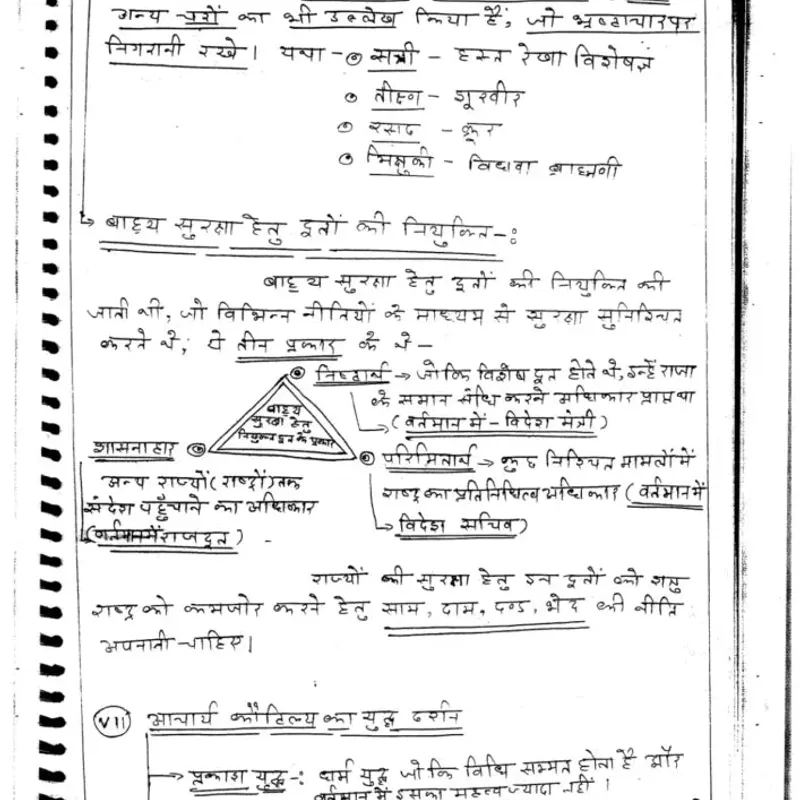 अन्य चरों का भी उल्लेख किया है, जो भ्रष्टाचार पर
निगरानी रखे। यथा - सत्री - हस्त रेखा विशेषज्ञ
तीक्ष्ण - शूरवीर
रसद - क्रूर
भिक्षुकी - विधवा ब्राह्मणी
बाह्य सुरक्षा हेतु दूतों की नियुक्ति -:
बाह्य सुरक्षा हेतु दूतों की नियुक्ति की
जाती थी, जो विभिन्न नीतियों के माध्यम से सुरक्षा सुनिश्चित
करते थे, ये तीन प्रकार के थे -
निष्ठार्थ → जोकि विशेष दूत होते थे, इन्हें राजा
के समान संधि करने अधिकार प्राप्त था
(वर्तमान में - विदेश मंत्री)
बाह्य
सुरक्षा हेतु
नियुक्त दूत के प्रकार
शासनाहार
अन्य राज्यों (राष्ट्रों) तक
संदेश पहुँचाने का अधिकार
(वर्तमान में राजदूत)
परिमितार्थ → कुछ निश्चित मामलों में
राष्ट्र का प्रतिनिधित्व अधिकार (वर्तमान में
विदेश सचिव)
राज्यों की सुरक्षा हेतु इन दूतों को शत्रु
राष्ट्र को कमजोर करने हेतु साम, दाम, दण्ड, भेद की नीति
अपनानी चाहिए।
VII आचार्य कौटिल्य का युद्ध दर्शन
→ प्रकाश युद्ध -: धर्म युद्ध जोकि विधि सम्मत होता है और
वर्तमान में इसका महत्व ज्यादा नहीं।